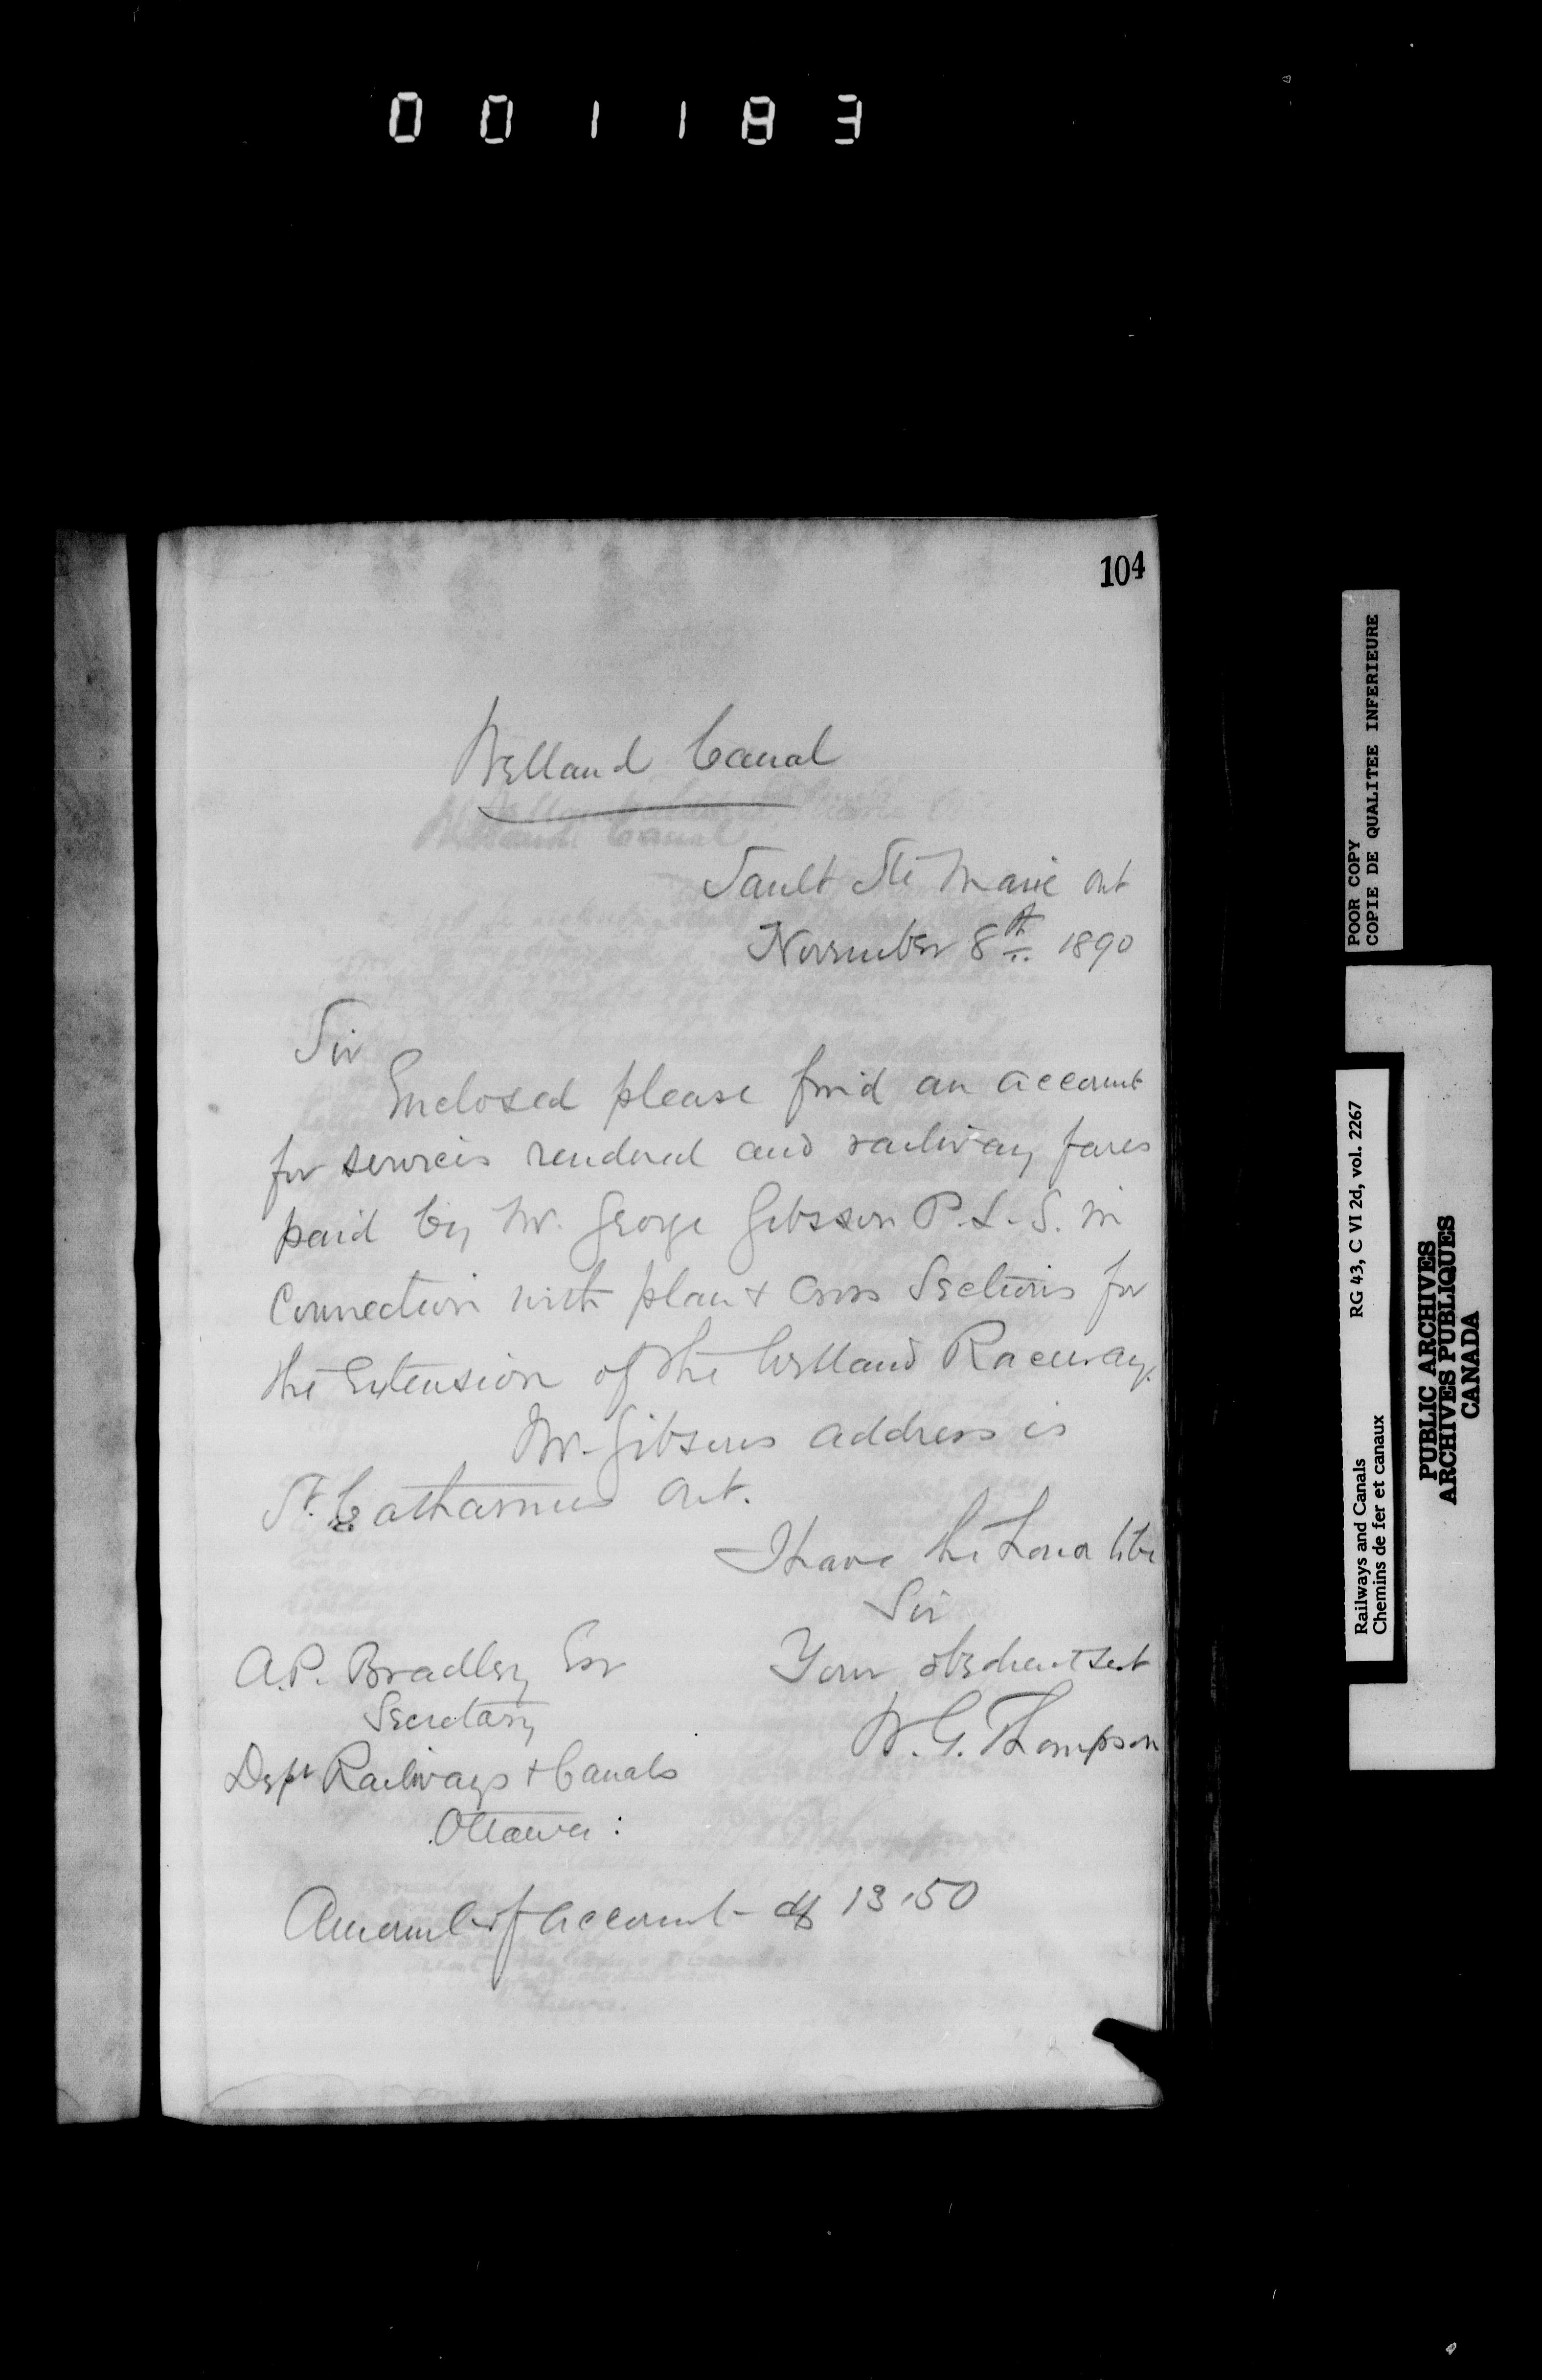 001183
104
Welland Canal
Sault Ste Marie Ont
November 8th 1890
Sir
Enclosed please find an account
for services rendered and railway fares
paid by Mr. George Gibson P.L.S. in
Connection with plan & Cross Sections for
the Extension of the Welland Raceway.
Mr. Gibsons address is
St. Catharines Ont.
I have the honor to be
Sir
Your obedient Servt
W. G. Thompson
A.P. Bradley Esq
Secretary
Dept Railways & Canals
Ottawa:
Amount of account - $ 13.50
POOR COPY
COPIE DE QUALITEE INFERIEURE
Railways and Canals RG 43, C VI 2d, vol. 2267
Chemins de fer et canaux
PUBLIC ARCHIVES
ARCHIVES PUBLIQUES
CANADA